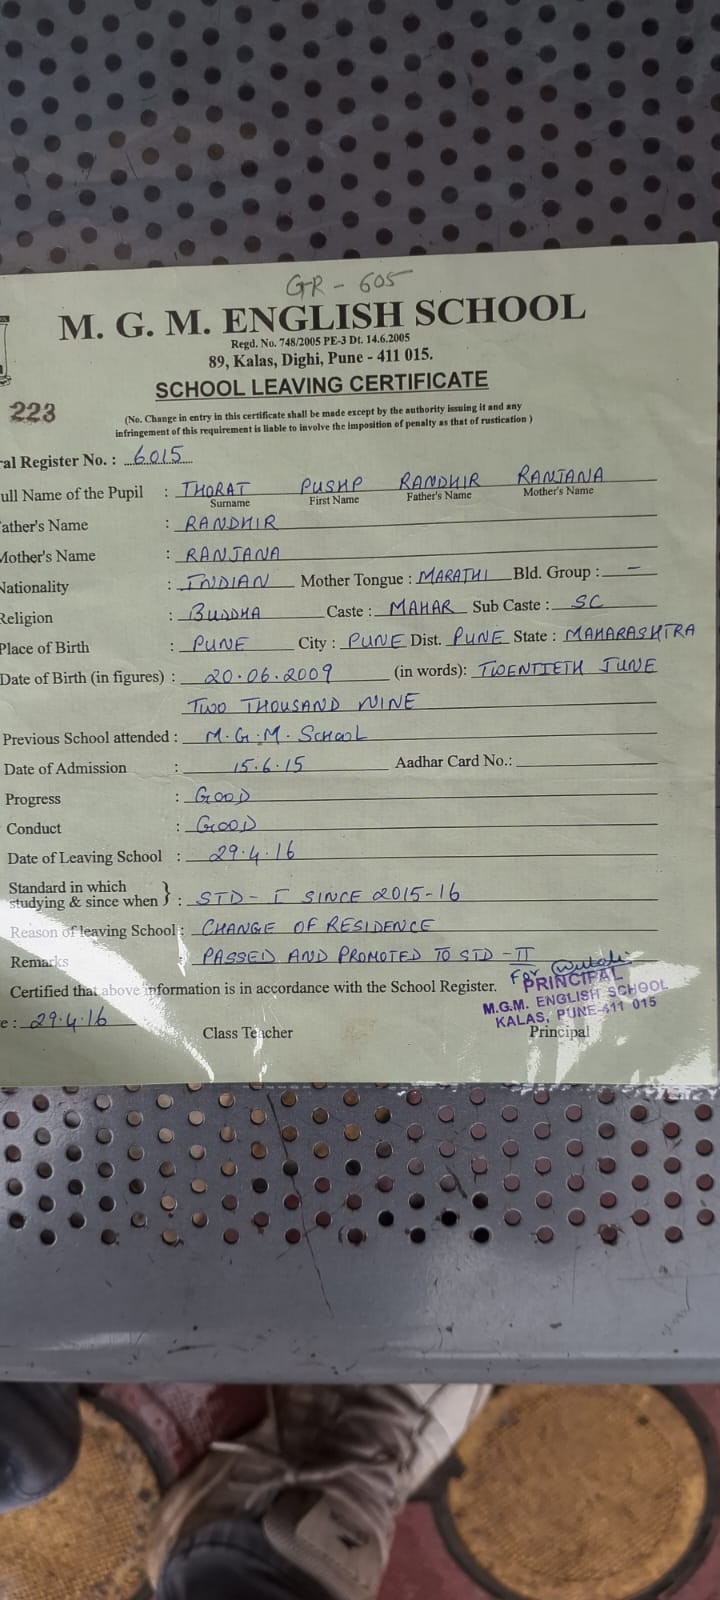 GR - 605
M. G. M. ENGLISH SCHOOL
Regd. No. 748/2005 PE-3 Dt. 14.6.2005
89, Kalas, Dighi, Pune - 411 015.
SCHOOL LEAVING CERTIFICATE
223
(No. Change in entry in this certificate shall be made except by the authority issuing it and any
infringement of this requirement is liable to involve the imposition of penalty as that of rustication )
al Register No. : 6015
ull Name of the Pupil : THORAT PUSHP RANDHIR RANJANA
Surname First Name Father's Name Mother's Name
ather's Name : RANDHIR
Mother's Name : RANJANA
Nationality : INDIAN Mother Tongue : MARATHI Bld. Group : -
Religion : BUDDHA Caste : MAHAR Sub Caste : SC
Place of Birth : PUNE City : PUNE Dist. PUNE State : MAHARASHTRA
Date of Birth (in figures) : 20.06.2009 (in words): TWENTIETH JUNE
TWO THOUSAND NINE
Previous School attended : M.G.M. SCHOOL
Date of Admission : 15.6.15 Aadhar Card No.:
Progress : GOOD
Conduct : GOOD
Date of Leaving School : 29.4.16
Standard in which
studying & since when } : STD - I SINCE 2015-16
Reason of leaving School : CHANGE OF RESIDENCE
Remarks : PASSED AND PROMOTED TO STD - II
Certified that above information is in accordance with the School Register.
For
PRINCIPAL
M.G.M. ENGLISH SCHOOL
KALAS, PUNE-411 015
e : 29.4.16
Class Teacher Principal